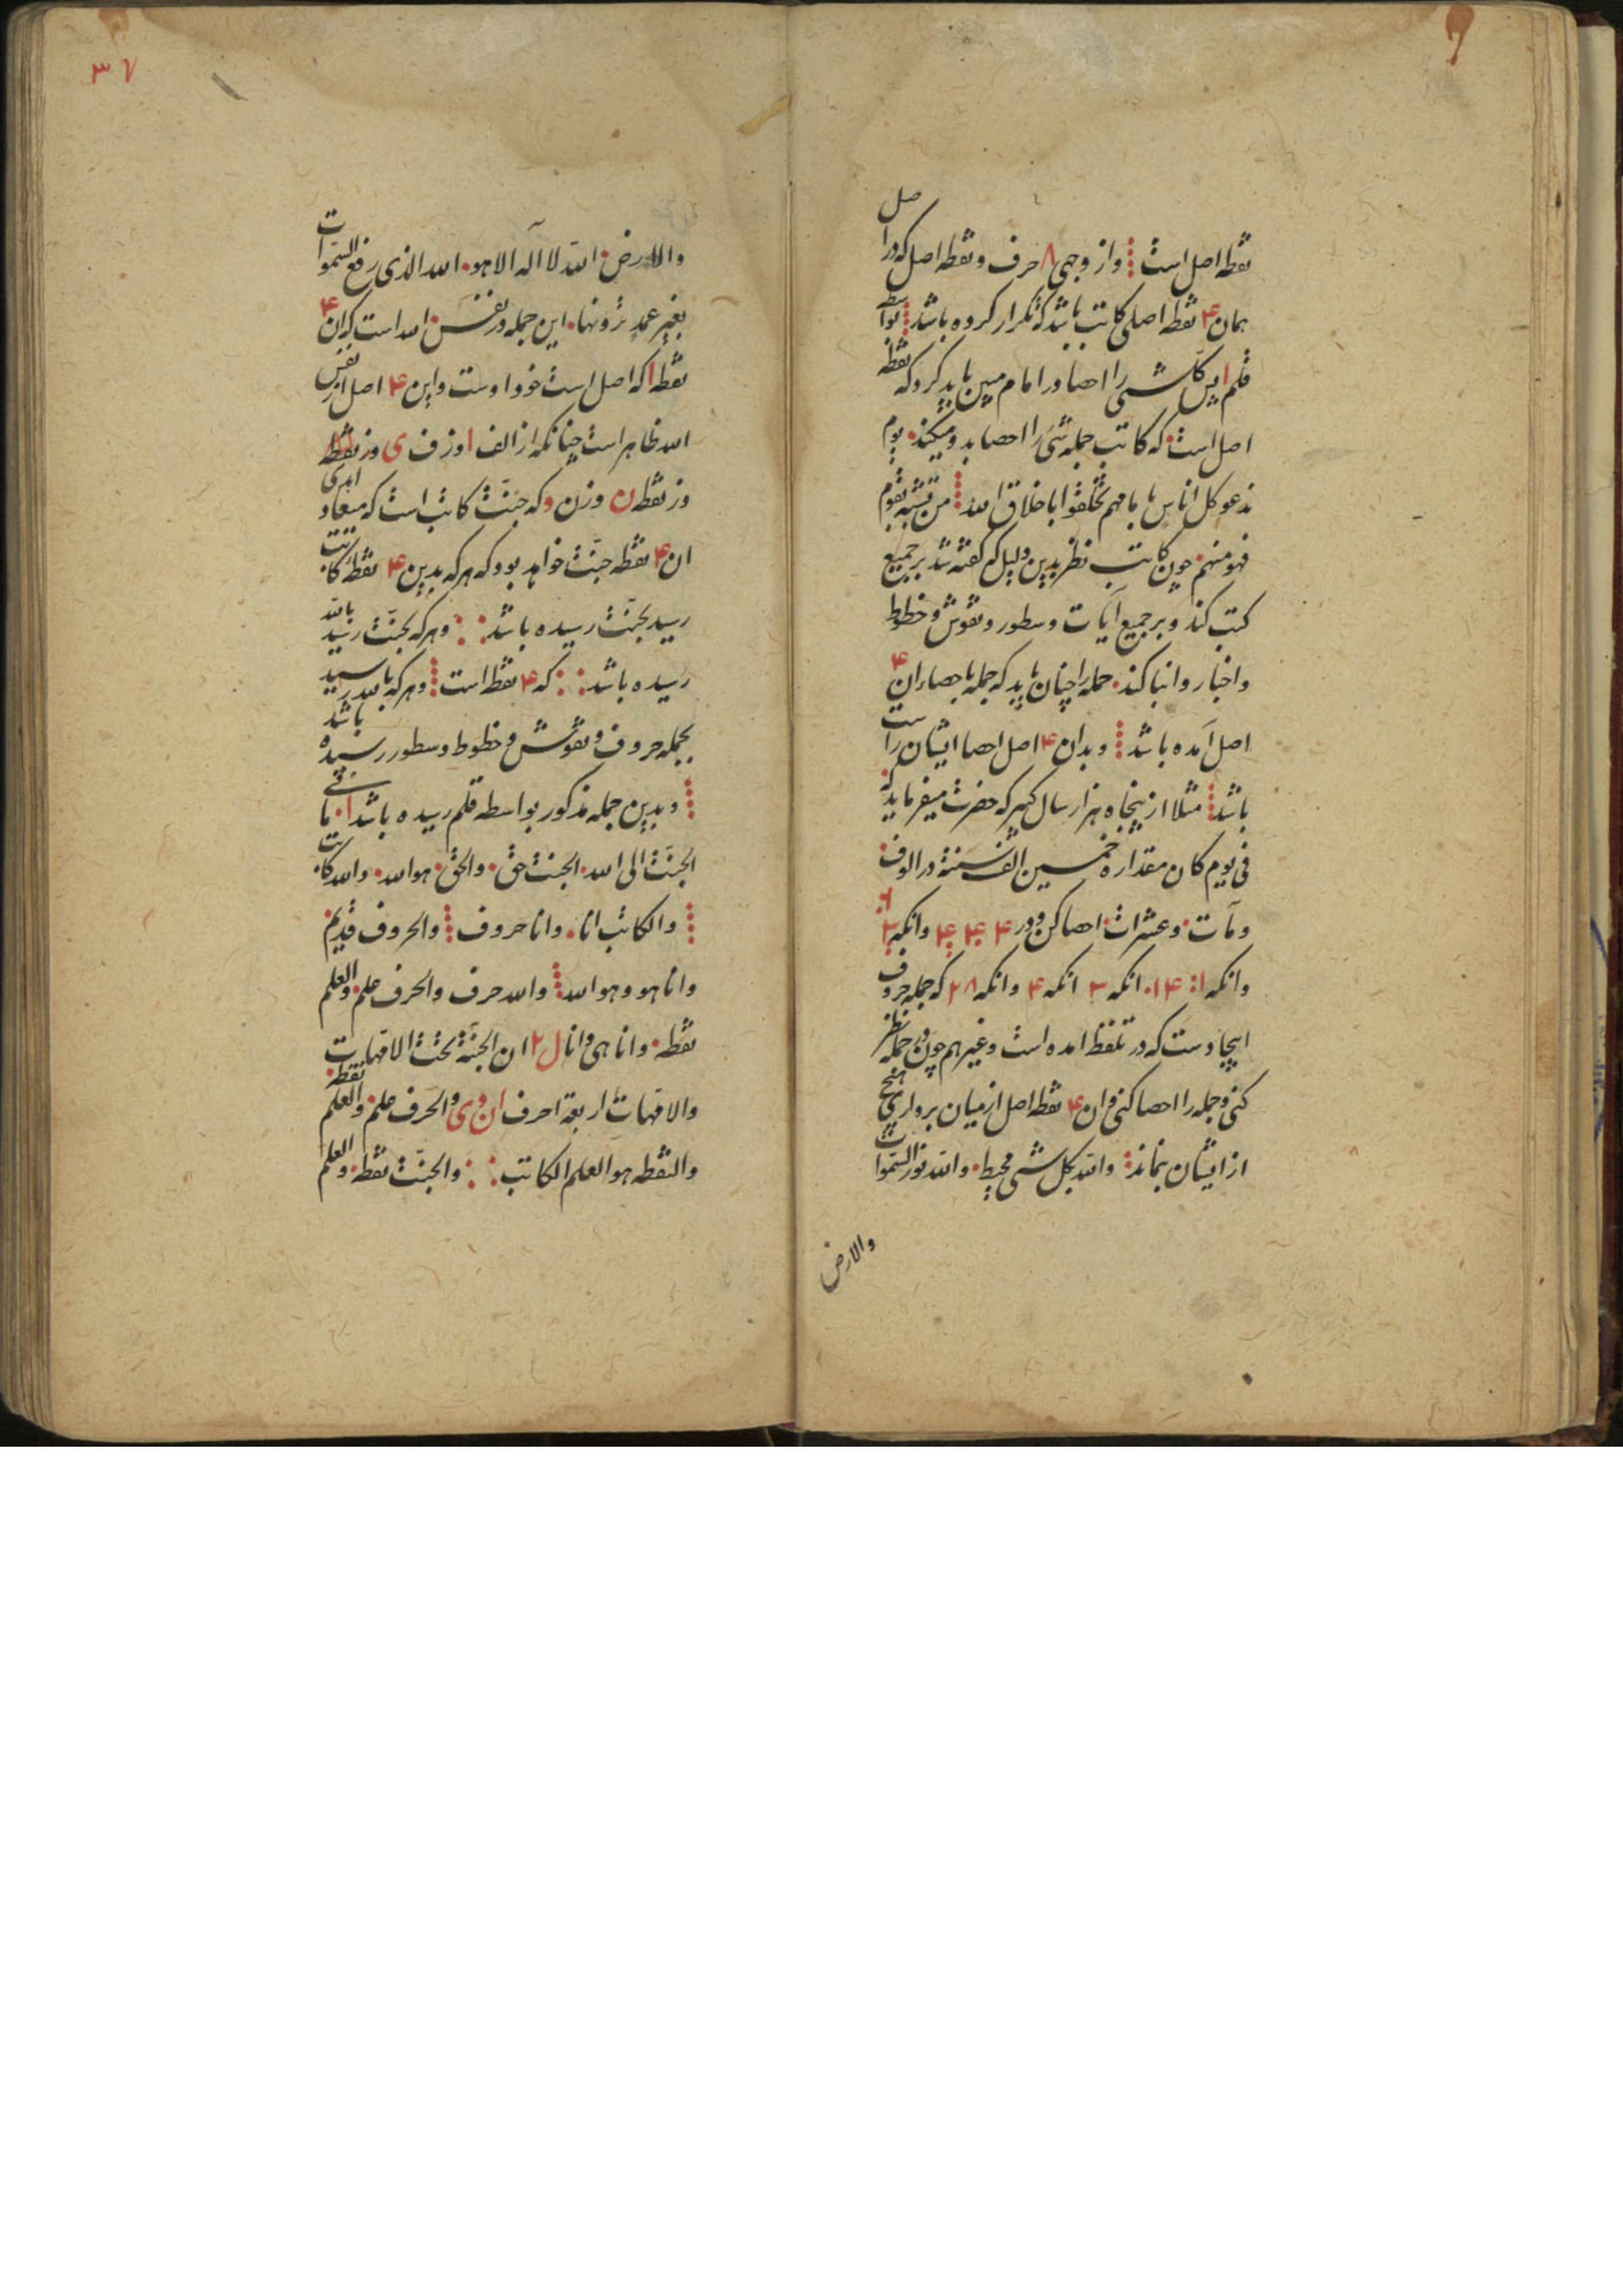 نقطه اصل است و از وجهی ۸ حرف و نقطه اصل که در اصل
همان ۴ نقطه اصلی کاتب باشد که تکرار کرده باشد بواسطه
قلم ا پس کل شی را احصا در امام مبین باید کرد که نقطه
اصل است که کاتب جمله شی را احصا بدو میکند یوم
ندعو کل اناس بامامهم تخلقوا باخلاق الله من تشبه بقوم
فهو منهم چون کاتب نظر بدین دلیل که گفته شد بر جمیع
کتب کند و بر جمیع آیات و سطور و نقوش و خطوط
و اخبار و انبا کند جمله را چنان باید که جمله باحصار ان ۴
اصل آمده باشد و بدان ۴ اصل احصا ایشان راست
باشد مثلا از پنجاه هزار سال گیر که حضرت میفرماید که
فی یوم کان مقداره خمسین الف سنة در الوف
و مآت و عشرات احصا کن و در ۴ ۴ ۴ وانکه ۲
وانکه ۱ ۱۴ انکه ۳ انکه ۴ وانکه ۲۸ که جمله حروف
ایجاد ست که در تلفظ امده است و غیرهم چون جمله نظر
کنی و جمله را احصا کنی و ان ۴ نقطه اصل از میان برداری هیچ
از ایشان نماند والله بکل شی محیط والله نور السموات
والارض
۳۷
والارض الله لا اله الا هو الله الذی رفع السموات
بغیر عمد ترونها این جمله در نفس الله است که ان ۴
نقطه ا که اصل است خود اوست و این ۴ اصل از نفس
الله ظاهر است چنانکه از الف ا و ز ف ی و ز نقطه
و ز نقطه ن و ز ن و که جنت کاتب است که میعاد ابدی
ان ۴ نقطه جنت خواهد بود که هر که بدین ۴ نقطه کاتب
رسید بجنت رسیده باشد و هر که بجنت رسید بالله
رسیده باشد که ۴ نقطه است و هر که بالله رسید
بجمله حروف و نقوش و خطوط و سطور رسیده باشد
و بدین جمله مذکور بواسطه قلم رسیده باشد
الجنت الی الله الجنت حق والحق هو الله والله کاتب
والکاتب انا وانا حروف والحروف قدیم
وانا هو وهو الله والله حرف والحرف علم والعلم
نقطه وانا هی وانا ل ۲ ان الجنة تحت الامهات
والامهات اربعة احرف ا ن و ی والحرف علم والعلم نقطه
والنقطه هو العلم الکاتب والجنت نقطه والعلم